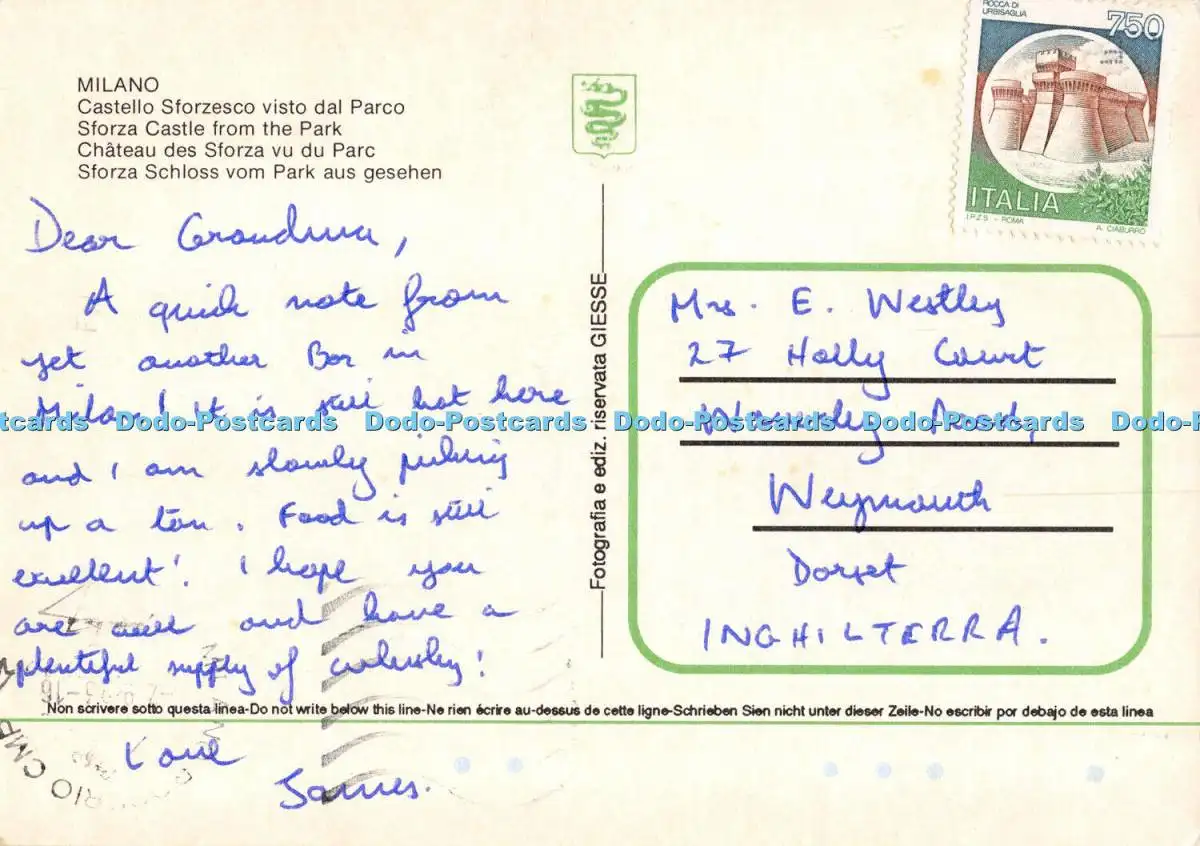 MILANO
Castello Sforzesco visto dal Parco
Sforza Castle from the Park
Château des Sforza vu du Parc
Sforza Schloss vom Park aus gesehen
Dear Grandma,
A quick note from
yet another Bar in
Milan! It is still hot here
and I am slowly picking
up a tan. Food is still
excellent! I hope you
are well and have a
plentiful supply of
Love
James.
Fotografia e ediz. riservata GIESSE
ROCCA DI
URBISAGLIA
750
ITALIA
I.P.Z.S. - ROMA
A. CIABURRO
Mrs. E. Westley
27 Holly Court
Road,
Weymouth
Dorset
INGHILTERRA.
Dodo-Postcards Dodo-Postcards Dodo-Postcards Dodo-Postcards
Non scrivere sotto questa linea-Do not write below this line-Ne rien écrire au-dessus de cette ligne-Schrieben Sien nicht unter dieser Zeile-No escribir por debajo de esta linea